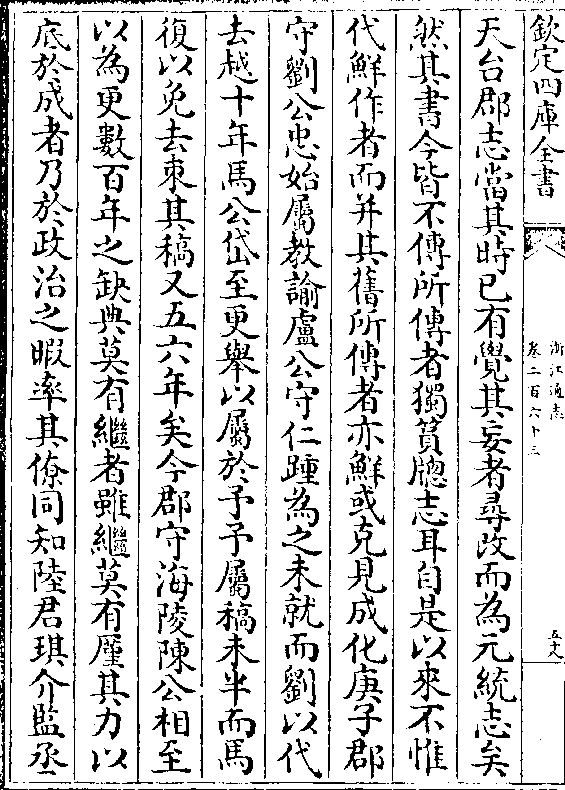 欽定四庫全書
浙江通志
卷二百六十三
五十八
天台郡志當其時已有覺其妄者尋改而為元統志矣
然其書今皆不傳所傳者獨篔牕志耳自是以來不惟
代鮮作者而并其舊所傳者亦鮮或克見成化庚子郡
守劉公忠始屬教諭盧公守仁踵為之未就而劉以代
去越十年馬公岱至更舉以屬於予予屬稿未半而馬
復以免去束其稿又五六年矣今郡守海陵陳公相至
以為更數百年之缺典莫有繼者雖繼莫有厪其力以
底於成者乃於政治之暇率其僚同知陸君琪介監丞